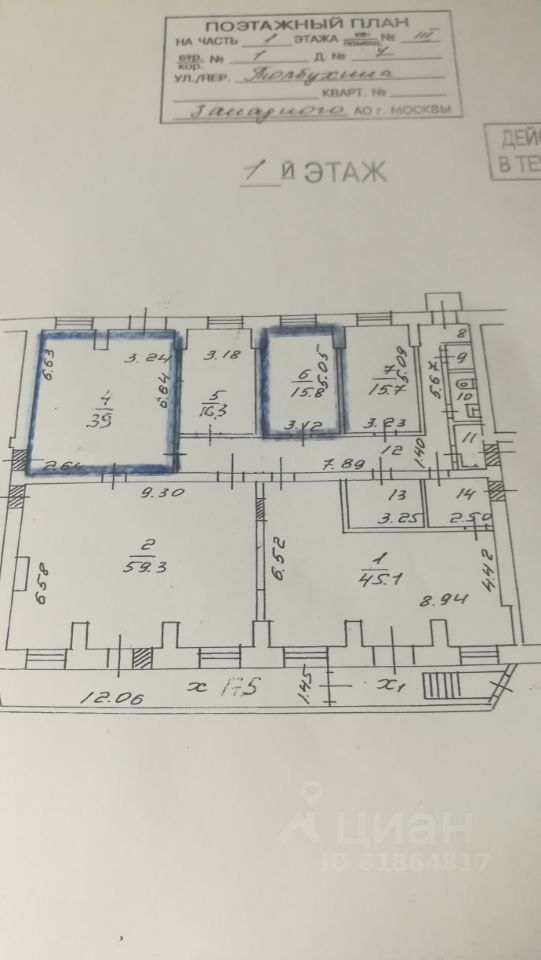 ПОЭТАЖНЫЙ ПЛАН
НА ЧАСТЬ 1 ЭТАЖА кв. помещ. № III
стр. кор. № 1 Д. № 7
УЛ./ПЕР. Толбухина
КВАРТ. №
Западного АО г. МОСКВЫ
ДЕЙС
В ТЕЧ
1 й ЭТАЖ
6.63
3.24
6.64
4
39
2.64
3.18
5
16.3
6
15.8
5.05
3.12
7
15.7
5.09
3.23
5.67
8
9
10
11
12
1.40
7.89
9.30
13
3.25
14
2.50
2
59.3
6.58
6.52
1
45.1
4.42
8.94
12.06
х 17.5
1.45
х1
циан
ID 81864817